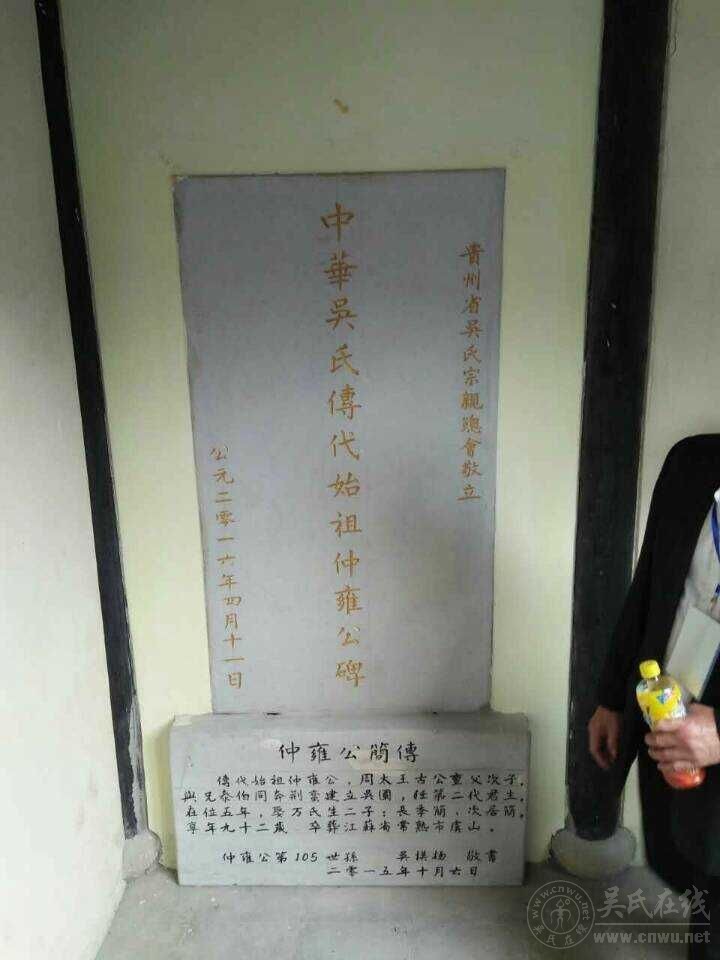 貴州省吳氏宗親總會敬立
中華吳氏傳代始祖仲雍公碑
公元二零一六年四月十一日
仲雍公簡傳
傳代始祖仲雍公，周太王古公亶父次子，
與兄泰伯同奔荊蠻建立吳國，任第二代君主，
在位五年，娶万氏生二子；長季簡，次居簡。
享年九十二歲，卒葬江蘇省常熟市虞山。
仲雍公第105世孫 吳 楊 敬書
二零一五年十月六日
吴氏在线
www.cnwu.net